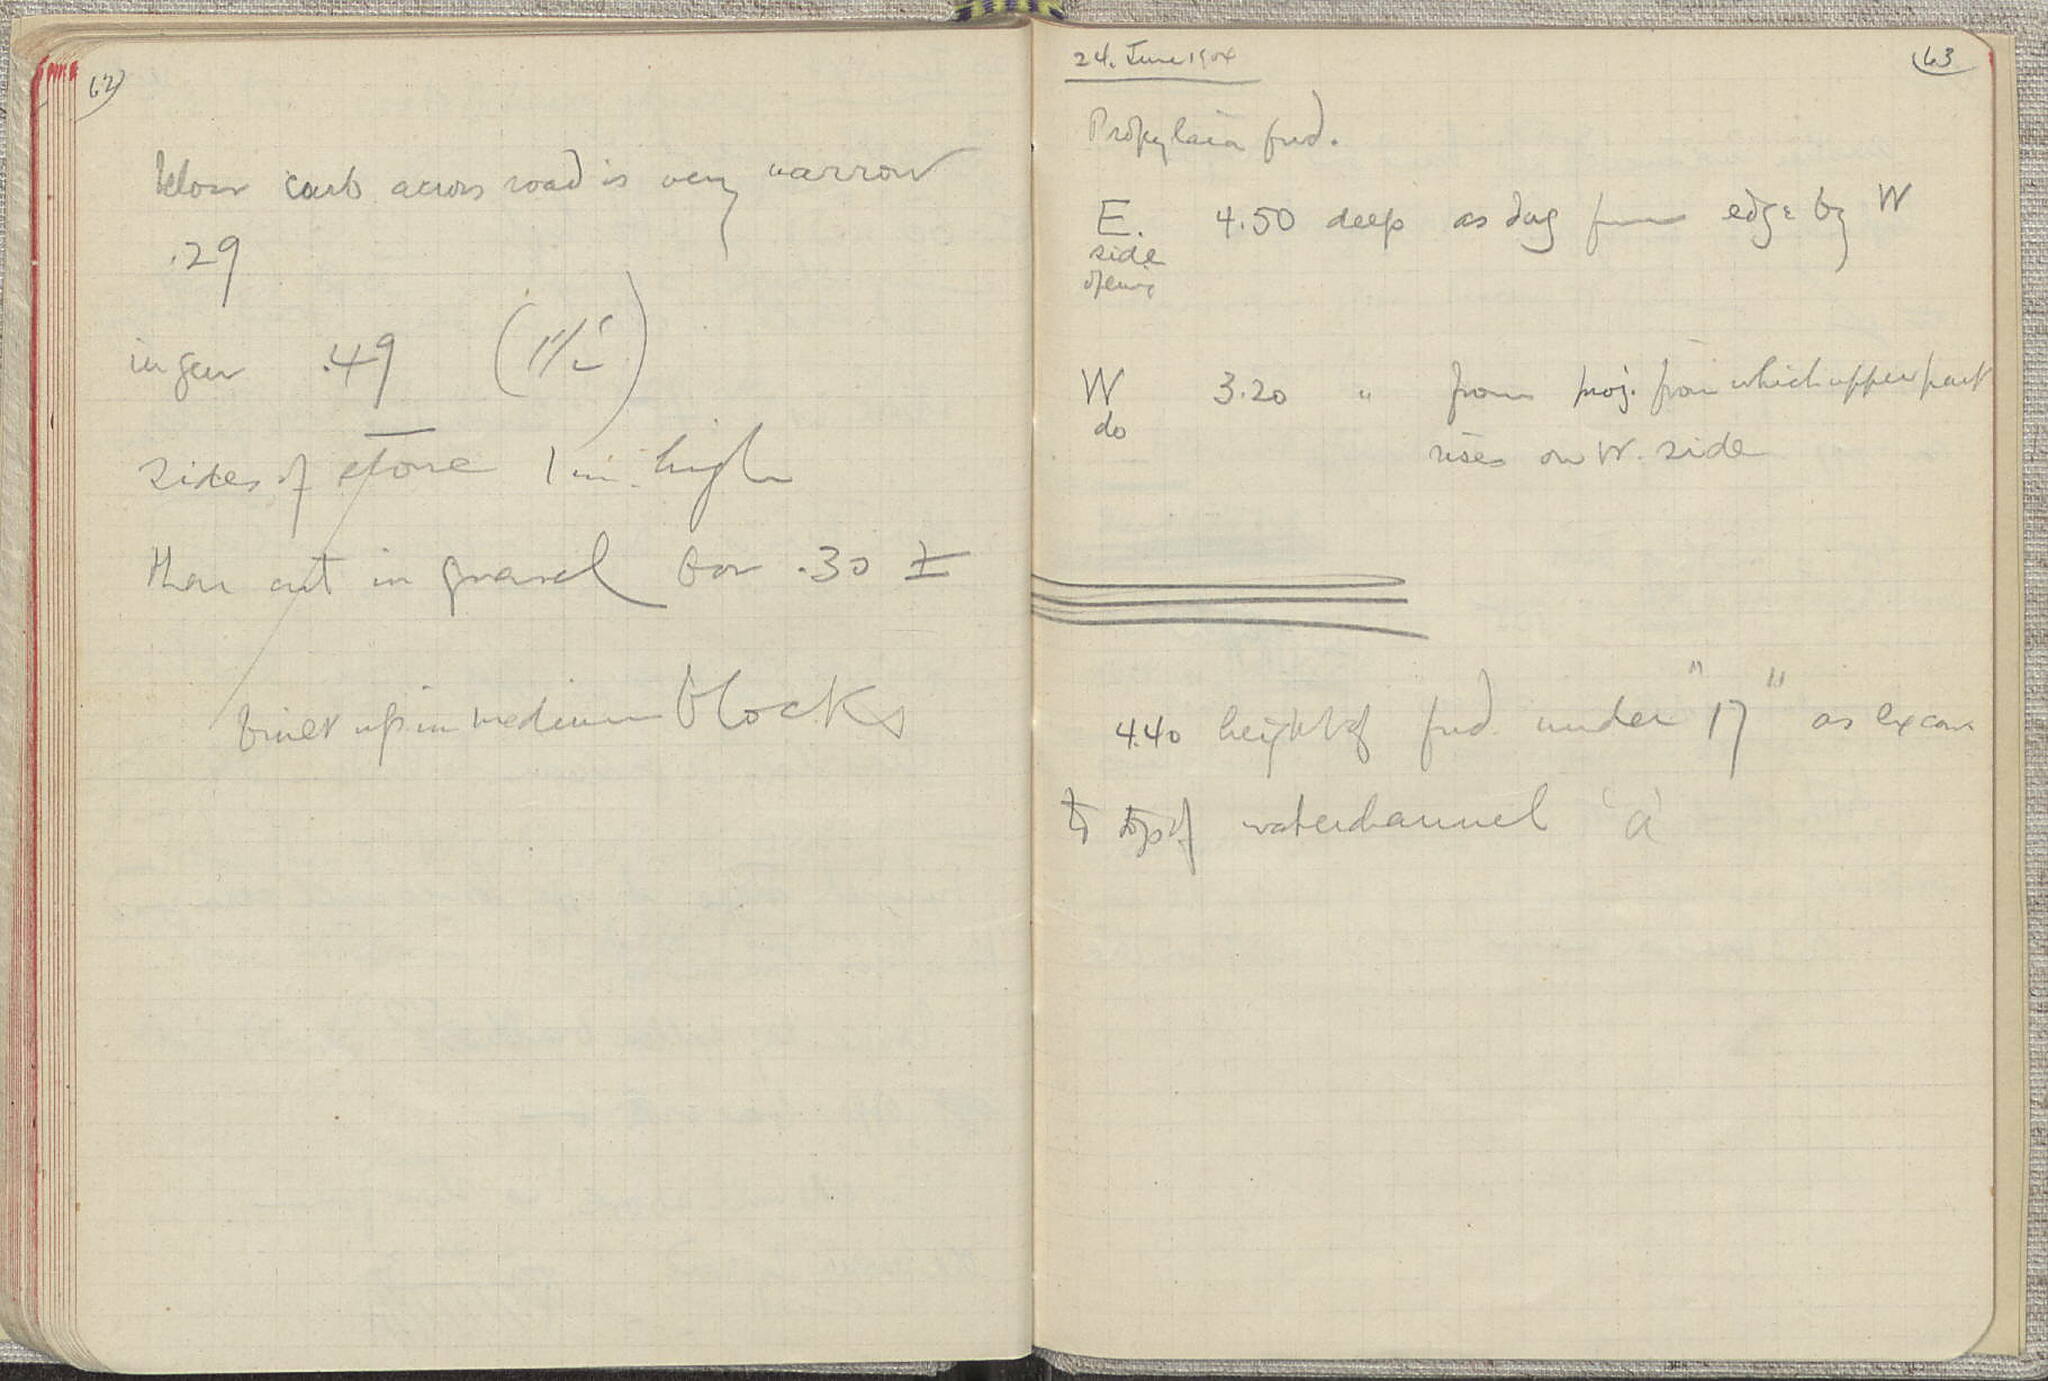 62
below curb across road is very narrow
.29
in gen .49 (1½')
sides of stone 1 m. high
then cut in gravel for .30 ±
built up in medium blocks
24. June 1904
63
Propylaia fnd.
E. 4.50 deep as dug from edge by W
side
opening
W 3.20 " from proj. from which upper part
do
rises on W. side
4.40 height of fnd. under "17" as excav
to top of waterchannel 'a'